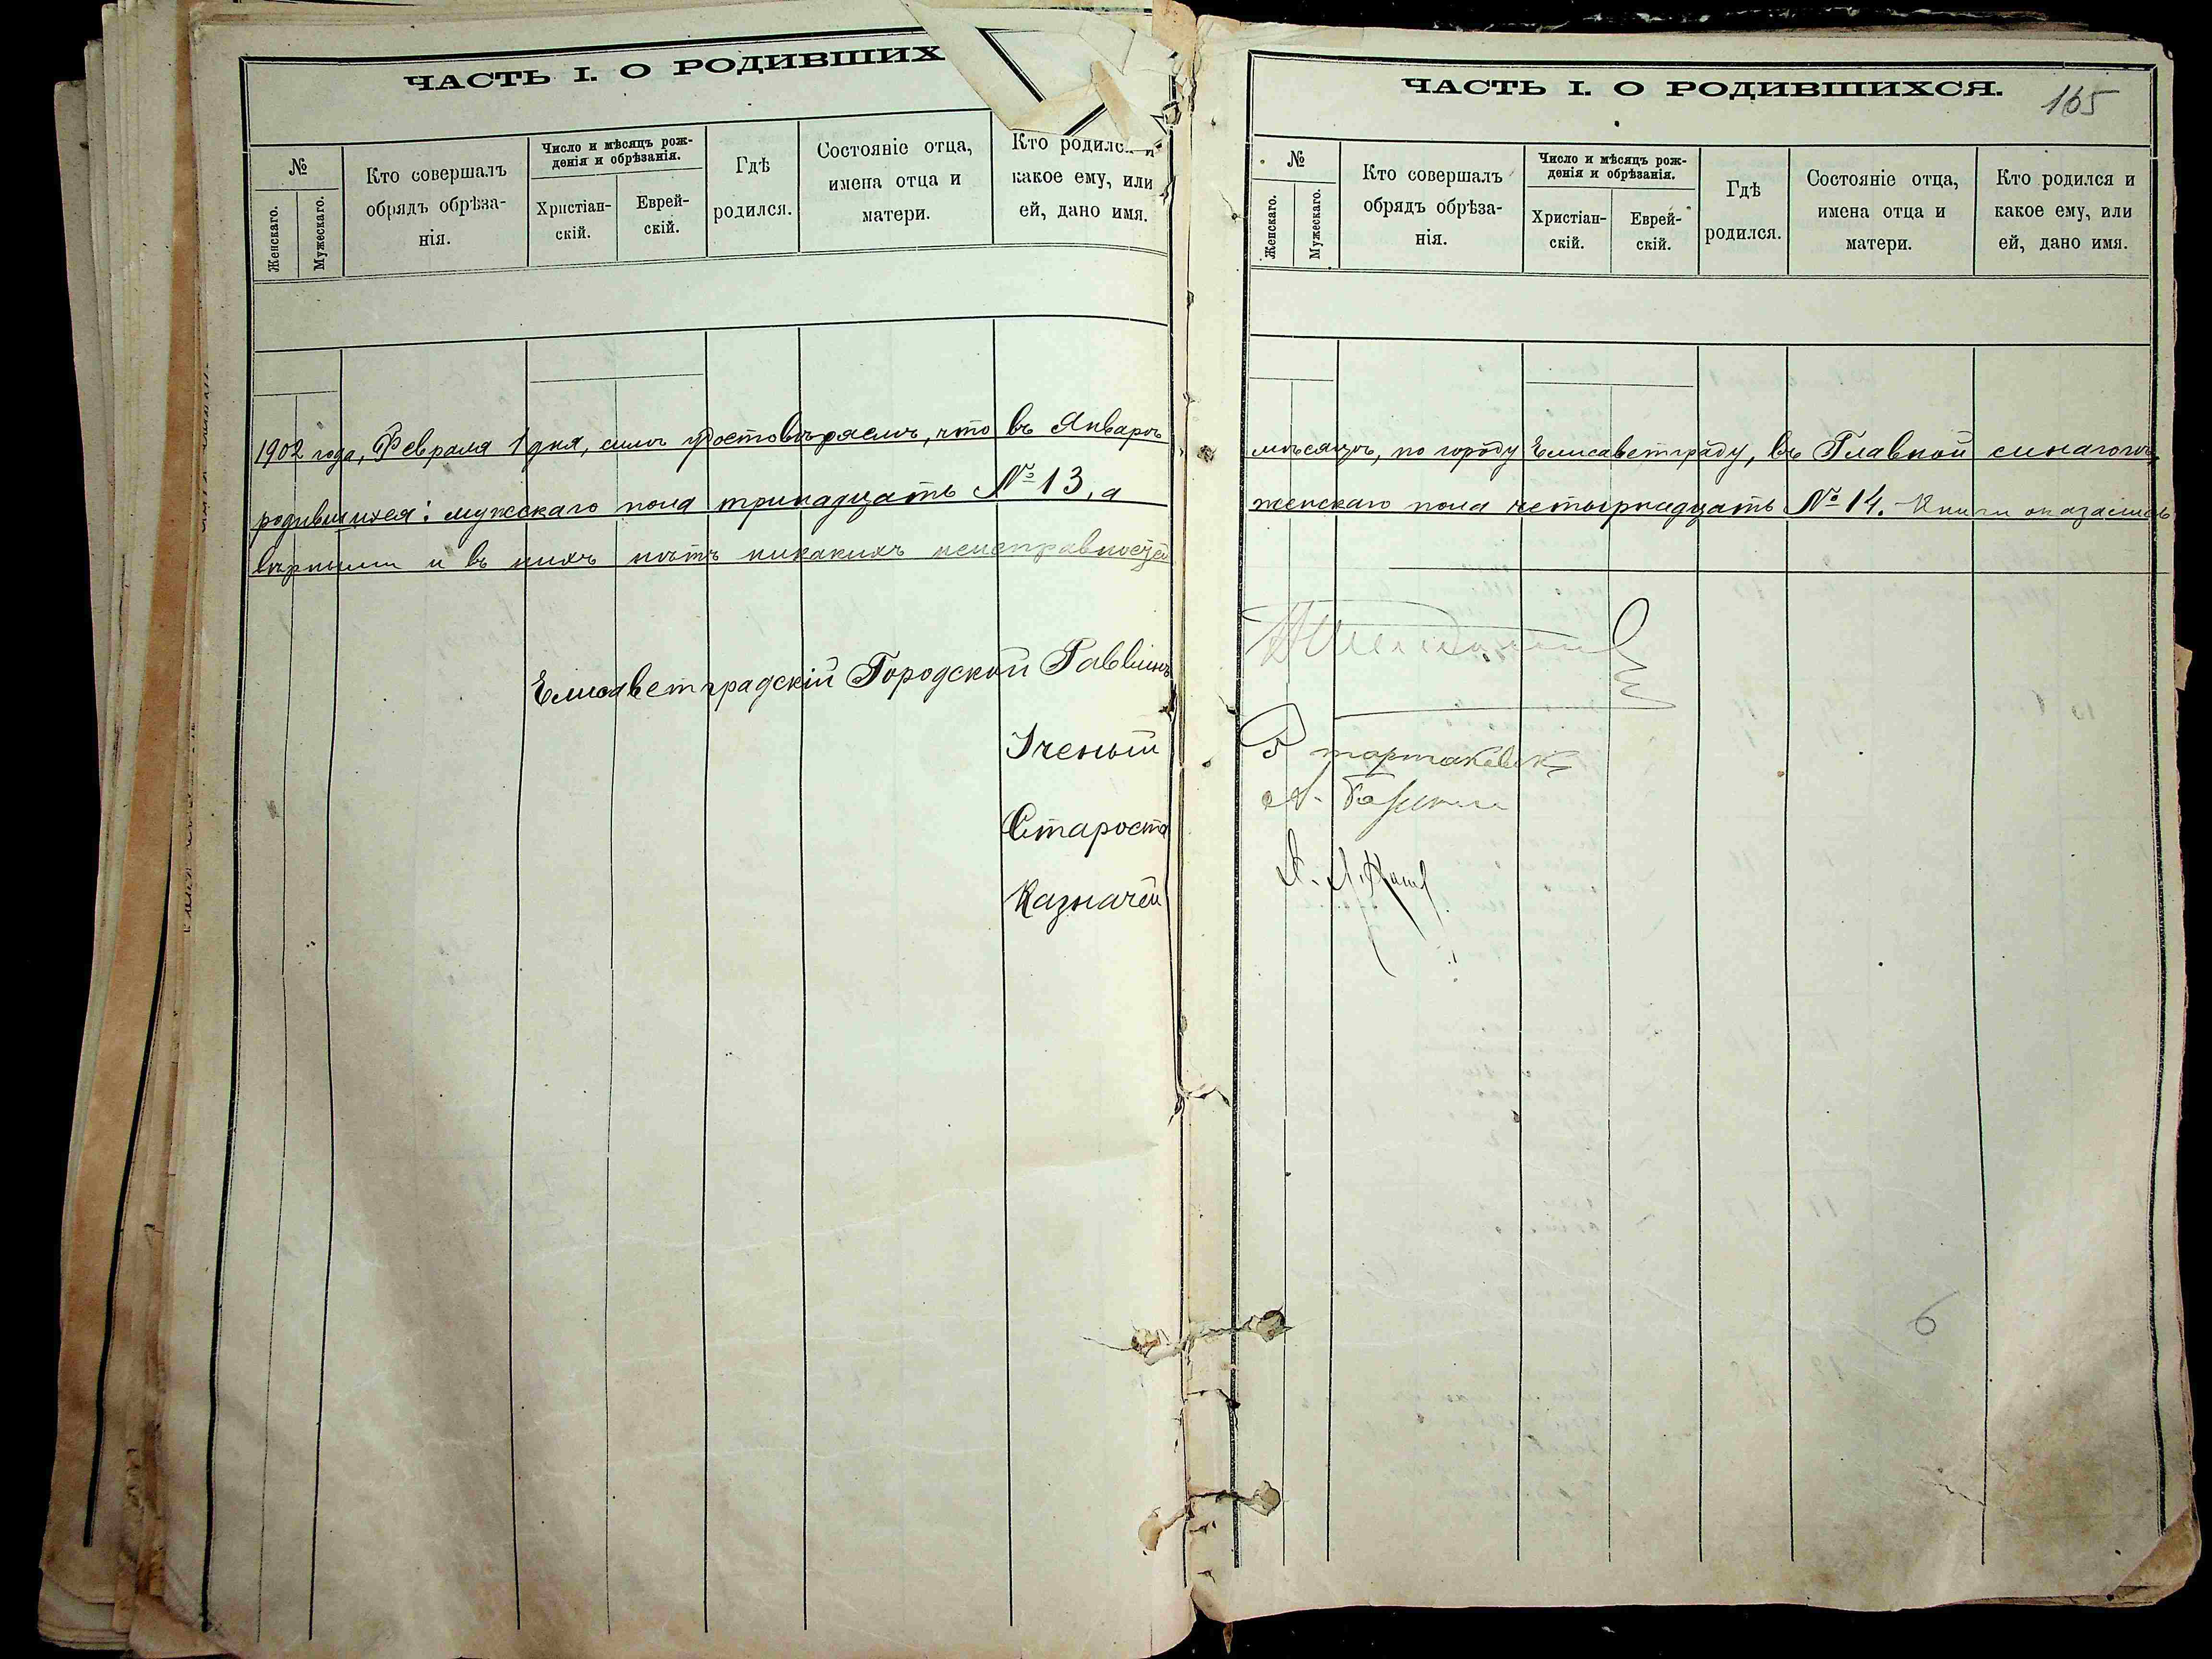 ЧАСТЬ I. О РОДИВШИХ
№
Женскаго.
Мужескаго.
Кто совершалъ
обрядъ обрѣза-
нія.
Число и мѣсяцъ рож-
денія и обрѣзанія.
Христіан-
скій.
Еврей-
скій.
Гдѣ
родился.
Состояніе отца,
имена отца и
матери.
Кто родился и
какое ему, или
ей, дано имя.
1902 года, Февраля 1 дня, симъ удостовѣряемъ, что въ Январѣ
родившихся: мужскаго пола тринадцать № 13, а
вѣрными и въ нихъ нѣтъ никакихъ неисправностей
Елисаветградскій Городской Раввинъ
Ученый
Староста
Казначей
ЧАСТЬ I. О РОДИВШИХСЯ.
165
№
Женскаго.
Мужескаго.
Кто совершалъ
обрядъ обрѣза-
нія.
Число и мѣсяцъ рож-
денія и обрѣзанія.
Христіан-
скій.
Еврей-
скій.
Гдѣ
родился.
Состояніе отца,
имена отца и
матери.
Кто родился и
какое ему, или
ей, дано имя.
мѣсяцѣ, по городу Елисаветграду, въ Главной синагогѣ
женскаго пола четырнадцать № 14. Книги оказались
6